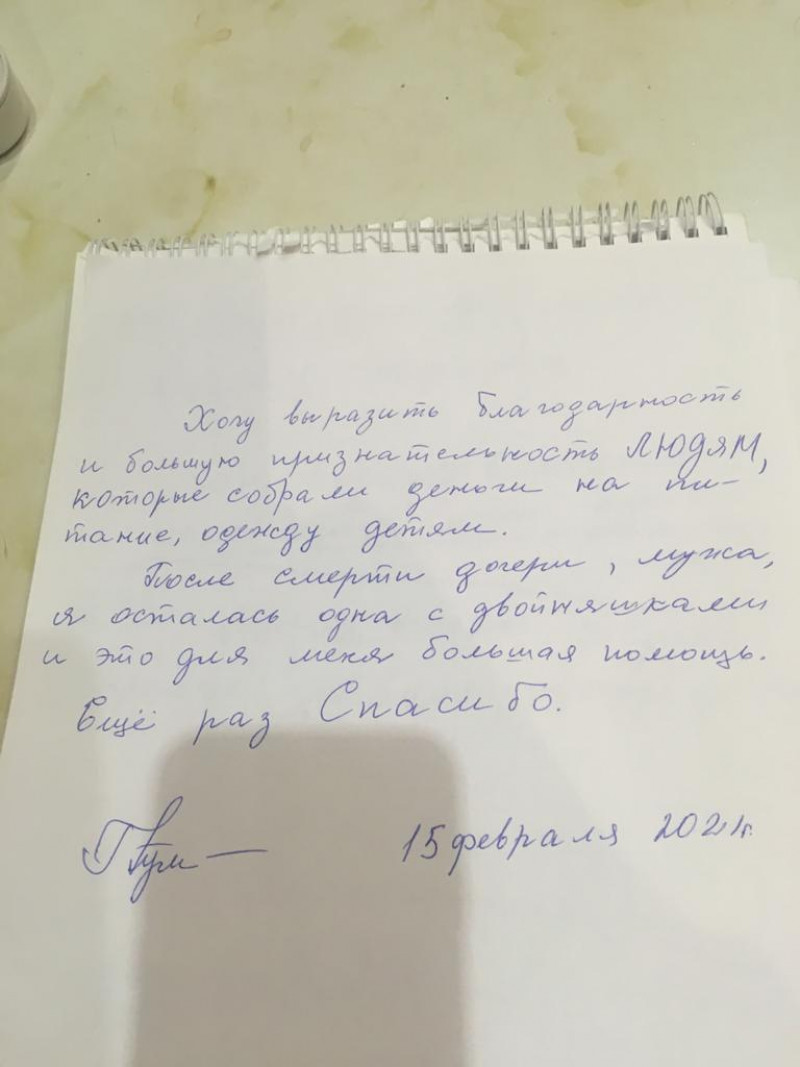 Хочу выразить благодарность
и большую признательность ЛЮДЯМ,
которые собрали деньги на пи-
тание, одежду детям.
После смерти дочери, мужа,
я осталась одна с двойняшками
и это для меня большая помощь.
Ещё раз Спасибо.
15 февраля 2021г.